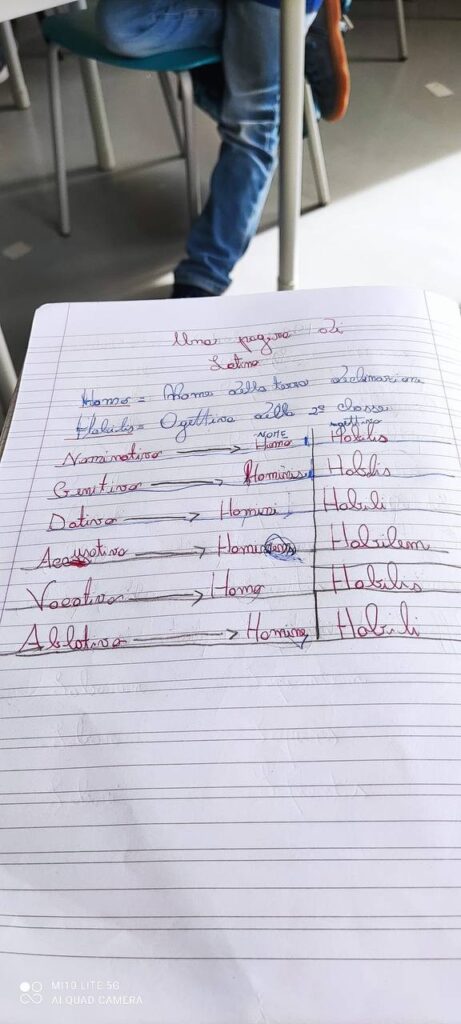 Una pagina di
Latino
Homo = Nome della terza declinazione
Habilis = Ogettivo della 2ª classe
NOME
Nominativo → Homo Habilis
Genitivo → Hominis Habilis
Dativo → Homini Habili
Accusativo → Homi Habilem
Vocativo → Homo Habilis
Ablativo → Homine Habili
MI 10 LITE 5G
AI QUAD CAMERA